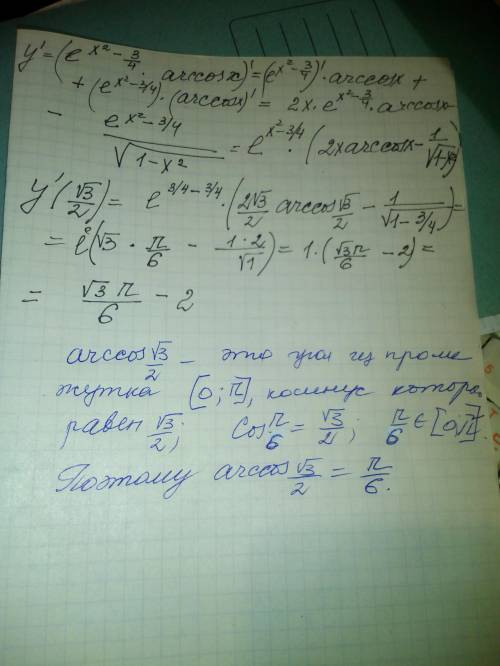 y' = (e^{x² - 3/4} · arccosx)' = (e^{x² - 3/4})' · arccosx +
+ (e^{x² - 3/4}) · (arccosx)' = 2x · e^{x² - 3/4} · arccosx -
- e^{x² - 3/4} / √(1-x²) = e^{x² - 3/4} · (2x arccosx - 1/√(1-x²))
y'(√3/2) = e^{3/4 - 3/4} · (2√3/2 arccos √3/2 - 1/√(1-3/4)) =
= e⁰(√3 · π/6 - 1·2/√1) = 1 · (√3π/6 - 2) =
= √3π/6 - 2
arccos √3/2 - это угол из проме
жутка [0; π], косинус которо
равен √3/2; cos π/6 = √3/2; π/6 ∈ [0; π].
Поэтому arccos √3/2 = π/6.